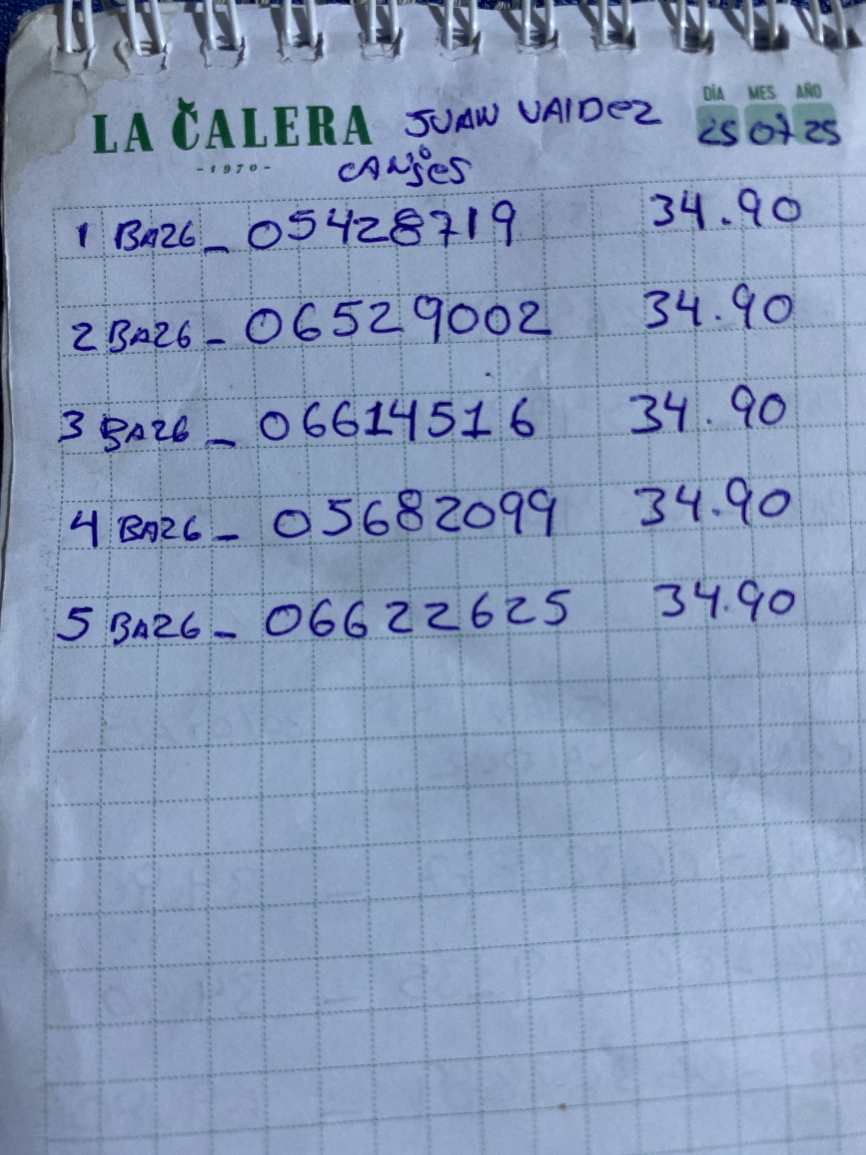 LA CALERA JUAN VAlDez DÍA MES AÑO
-1970- CANjeS 25 07 25
1 BA26 - 05428719 34.90
2 BA26 - 06529002 34.90
3 BA26 - 06614516 34.90
4 BA26 - 05682099 34.90
5 BA26 - 06622625 34.90